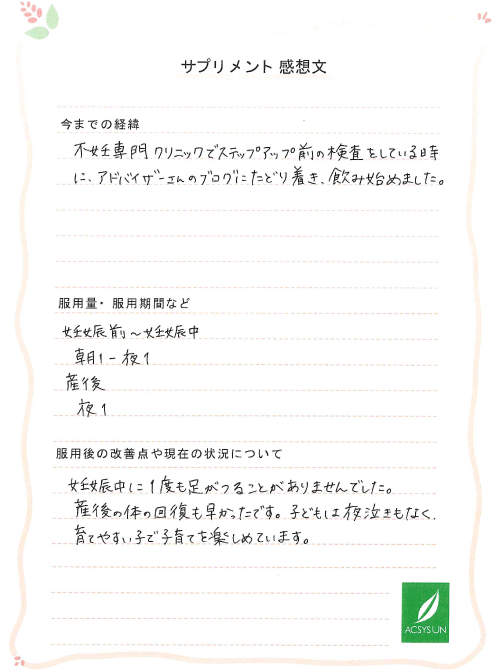 サプリメント 感想文
今までの経緯
不妊専門クリニックでステップアップ前の検査をしている時
に、アドバイザーさんのブログにたどり着き、飲み始めました。
服用量・服用期間など
妊娠前～妊娠中
朝1－夜1
産後
夜1
服用後の改善点や現在の状況について
妊娠中に1度も足がつることがありませんでした。
産後の体の回復も早かったです。子どもは夜泣きもなく、
育てやすい子で子育てを楽しめています。
ACSYSUN